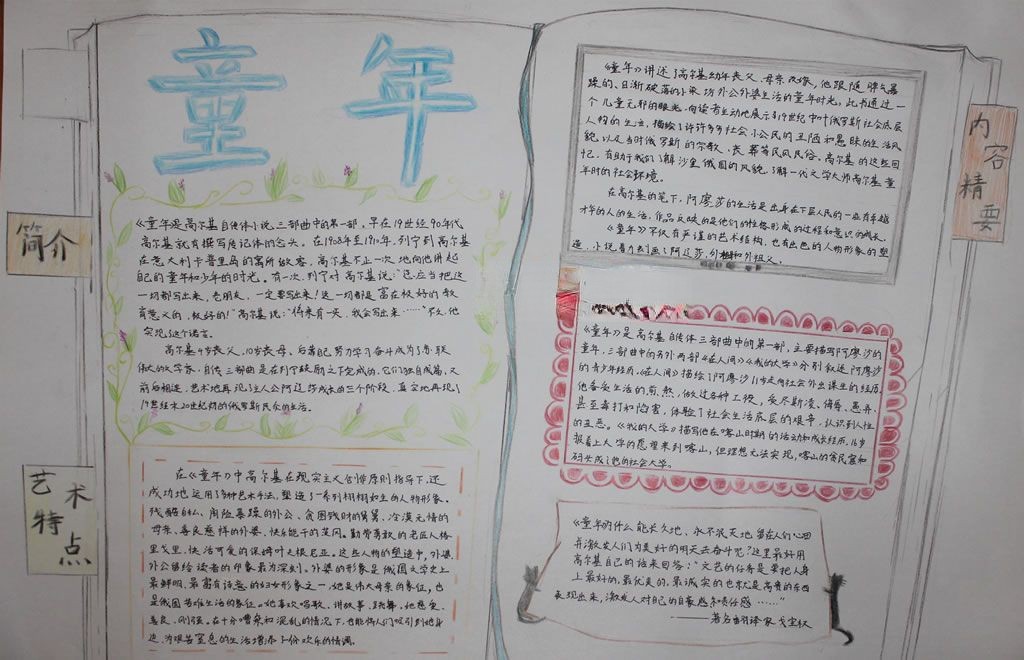 童年
简介
《童年是高尔基自传体小说三部曲中的第一部，早在19世纪90年代
高尔基就有撰写传记体的念头。在1908年至1910年，列宁到高尔基
在意大利卡普里岛的寓所做客，高尔基不止一次地向他讲起
自己的童年和少年的时光。有一次，列宁对高尔基说：“您应当把这
一切都写出来，老朋友，一定要写出来！这一切都是富有极好的教
育意义的，极好的！”高尔基说：“将来有一天，我会写出来……”不久，他
实现了这个诺言。
高尔基4岁丧父，10岁丧母，后靠自己努力学习奋斗成为了苏联
伟大的文学家，自传三部曲是在列宁鼓励之下完成的，它们独自成篇，又
前后相连，艺术地再现了主人公阿廖莎成长的三个阶段，真实地再现了
19世纪末20世纪初的俄罗斯民众的生活。
艺术特点
在《童年》中高尔基在现实主义创作原则指导下，还
成功地运用了多种艺术手法，塑造了一系列栩栩如生的人物形象，
残酷自私、粗险暴躁的外公、贪图钱财的舅舅、冷漠无情的
母亲、善良慈祥的外婆、快乐能干的茨冈。勤劳勇敢的老匠人格
里戈里、快活可爱的保姆叶夫根尼亚。这些人物的塑造中，外婆、
外公留给读者的印象最为深刻。外婆的形象是俄国文学史上
最鲜明、最富有诗意的妇女形象之一，她是伟大母亲的象征，也
是俄国苦难生活的象征。她喜欢唱歌、讲故事、跳舞，她慈爱、
善良、刚强。在十分嘈杂和混乱的情况下，也能将人们吸引到她身
边，为艰苦窒息的生活增添了份欢乐的情调。
内容精要
《童年》讲述了高尔基幼年丧父、母亲改嫁，他跟随脾气暴
躁的、日渐破落的小染坊外公外婆生活的童年时光，此书通过一
个儿童无邪的眼光，向读者生动地展示了19世纪中叶俄罗斯社会底层
人物的生活，描绘了许许多多社会小公民的丑陋和愚昧的生活风
貌，以及当时俄罗斯的宗教、丧葬等民风民俗。高尔基的这些回
忆，有助于我们了解沙皇俄国的风貌，了解一代文学大师高尔基童
年时的社会环境。
在高尔基的笔下，阿廖莎的生活是出身在下层人民的一些有卓越
才华的人的生活，作品反映的是他们的性格形成的过程和意识的成长。
《童年》不仅有严谨的艺术结构，也有出色的人物形象的塑
造，小说着力刻画了阿辽莎、外祖和外祖父。
《童年》是高尔基自传体三部曲中的第一部，主要描写阿廖莎的
童年，三部曲中的另外两部《在人间》《我的大学》分别叙述阿廖沙
的青少年经历，《在人间》描绘了阿廖沙11岁走向社会外出谋生的经历
他备受生活的煎熬，做过各种工役，受尽欺凌、侮辱、愚弄、
甚至毒打和陷害，体验了社会生活底层的艰辛，认识到人性
的丑恶。《我的大学》描写他在喀山时期的活动和成长经历，16岁
报着上大学的愿望来到喀山，但理想无法实现，喀山的贫民窟和
码头成了他的社会大学。
《童年》为什么能长久地、永不泯灭地留在人们心田
并激发人们为美好的明天去奋斗呢？这里最好用
高尔基自己的话来回答：“文艺的任务是要把人身
上最好的、最优美的、最诚实的也就是高贵的东西
表现出来，激发人对自己的自豪感和责任感……”
———著名翻译家戈宝权